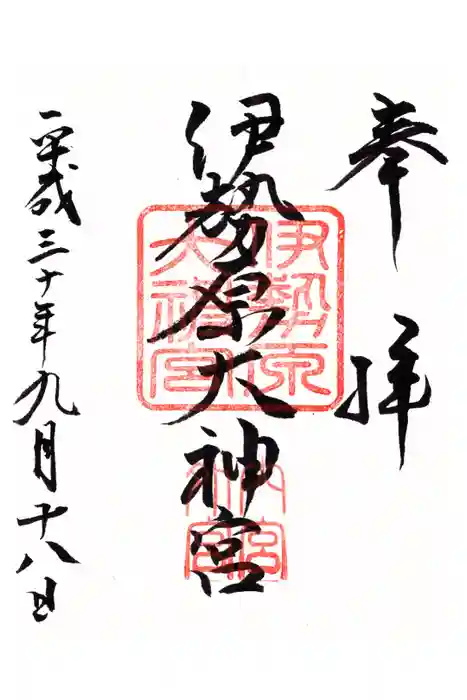 奉拝
伊勢原大神宮
平成三十年九月十八日
伊勢原
大神宮